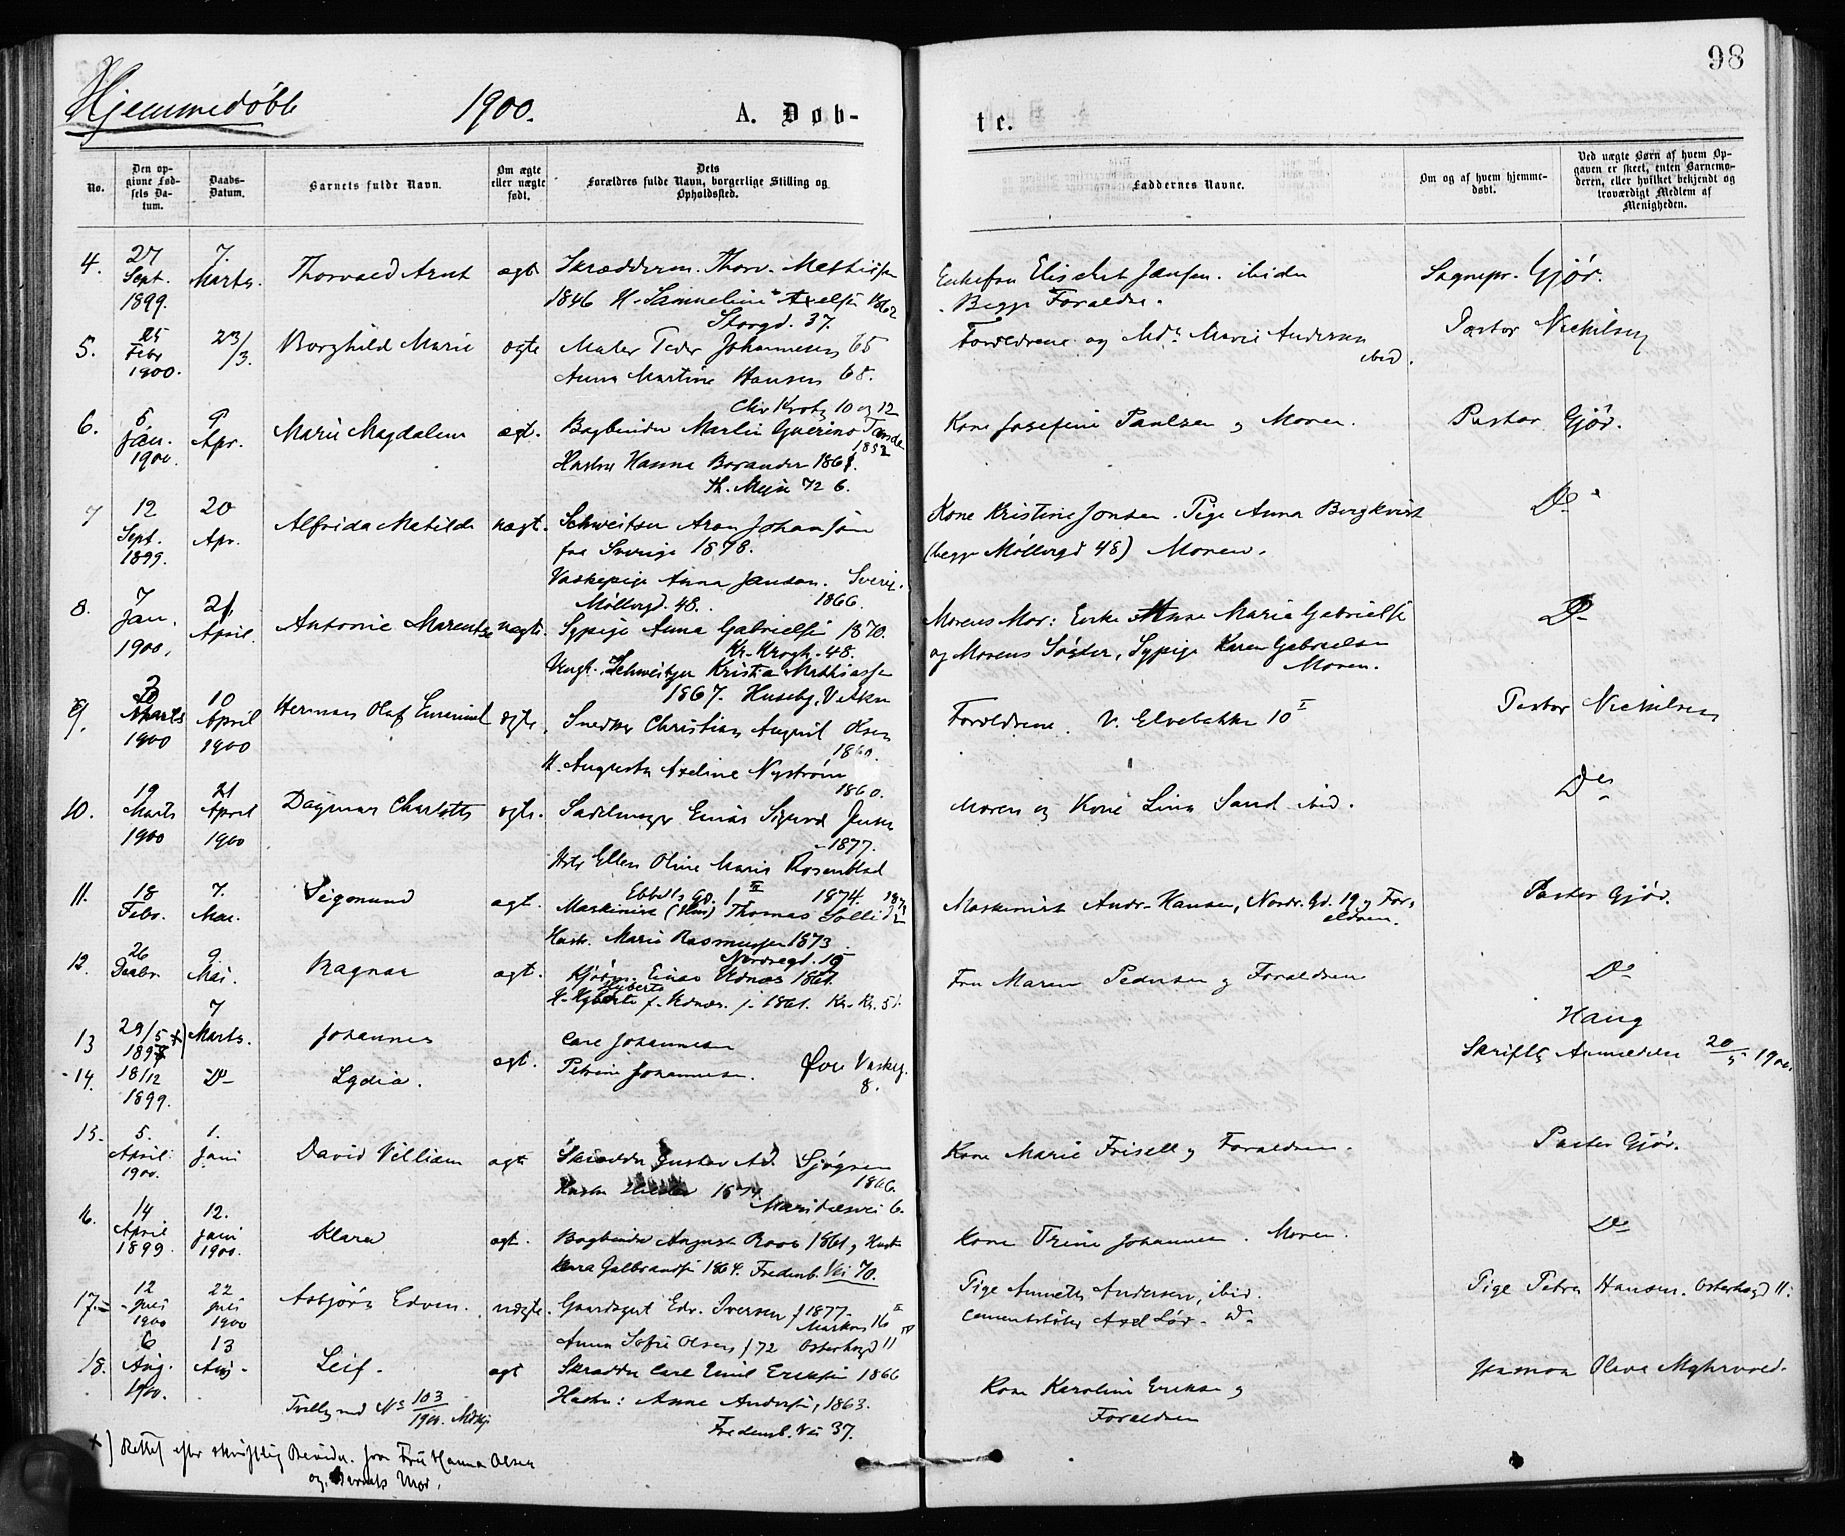 98
Hjemmedøbte 1900. A. Døb-
te.
No.
Den opgivne Fødsels Datum.
Daabs-Datum.
Barnets fulde Navn.
Om ægte eller uægte født.
Dets Forældres fulde Navn, borgerlige Stilling og Opholdssted.
Faddernes Navne.
Om og af hvem hjemmedøbt.
Ved uægte Børn af hvem Opgaven er skeet, enten Barnemoderen, eller hvilket bekjendt og troværdigt Medlem af Menigheden.
4. 27 Sept. 1899. 7. Marts. Thorvald Arnt ægte Skrædderm. Thorv. Mathisen
1846 H. Axelsen 1862
Storgd. 37.
Enkefru Jansen. ibidem
Begge Forældre.
Sognepr. Gjør.
5. 25 Febr 1900. 23/3. Borghild Marie ægte Maler Peder Johannesen 65
Anna Martine Hansen 68.
Forældrene og Md. Marie Andersen
ibid.
Pastor Nickelsen
6. 5 Jan. 1900. 9 Apr. Marie Magdalene ægt. Chr. Krohg 10 og 12
Bogbinder Martin
1852
Hustru Hanna 1861.
Th. Meyer 72 b.
Kone Josefine Paulsen og Moren.
Pastor Gjør.
7 12 Sept. 1899. 20 Apr. Alfrida Matilde uægt. Schweitser Aron Johansson
fra Sverige 1878.
Vaskepige Anna Jansen. Sverig.
Møllergd. 48. 1866.
Kone Kristine Jonsen. Pige Anna Bergkvist
(begge Møllergd 48) Moren.
Do
8. 7 Jan. 1900. 21. April. Antonie Marentze uægte. Sypige Anna Gabrielsen 1870.
Kr. Krogh. 48.
Ungk. Schweitzer Kristian Mathiassen
1867. Huseby, V. Aker
Morens Mor: Enke Anne Maria Gabrielsen
og Morens Søster, Sypige Karen Gabrielsen
Moren.
Do
9. 2 Marts 1900 10 April 1900 Herman Olaf Emanuel ægte. Snedker Christian August Olsen
1860.
H. Augusta Axeline Nystrøm
1860.
Forældrene. V. Elvebakken 10 I
Pastor Nickelsen
10. 19 Marts 1900 21 April 1900 Dagmar Charlotte ægte. Sadelmager Einar Sigurd Jensen
1877.
Hstr Ellen Oline Marie Rosenblad
Ebbells gd. 1 III 1874.
Moren og Kone Lina Sand ibid.
Do
11. 18 Febr. 7. Mai. Sigmund ægt. Maskinist Thomas Sollid 1872
Hustr. Marie Rasmussen 1873
Nordregd. 15
Maskinist Andr. Hansen, Nordr. Gd. 19 og Forældren.
Pastor Gjør.
12. 26 Decbr. 9. Mai. Ragnar ægt. Kjøbm. Einar Udnæs 1867.
f. Udnæs. 1861. Kr. Kr. 51.
Fru Maren Pedersen og Forældren
Do
13 29/5 1897 ×) 7 Marts. Johannes Carl Johannesen
Haug
14. 18/12 1899. Do Lydia. ægt. Petrine Johannesen. Øvre Vaskeg.
8.
Skriftlig Anmeldelse 20/5 1900.
15. 5. April 1900. 1. Juni David Villiam ægt Skrædder Gustav Ad. Sjøgren
1866.
Hustru 1874
Maridalsvei 6.
Kone Marie Frisell og Forældren.
Pastor Gjør.
16. 14 April 1899. 12. Juni 1900. Klara ægt. Bogbinder August Roos 1861 og Hustru
Gulbrandsen 1864. Fredensb. Vei 70.
Kone Trine Johannesen. Moren.
Do
17. 12 Juli 1900 22 Juli 1900 Asbjørn Edvin. uægte. Gaardsgut Edv. Iversen f 1877.
Markvn 16 II
Anna Sofie Olsen f 72 Osterhgd 11 IV
Pige Annette Andersen, ibid.
Cementstøber Axel Lør. Do
Pige Petra Hansen. Osterhgd 11.
18. 6 Aug. 1900. 13 Aug. Leif. ægt Skrædder Carl Emil Eriksen 1866
Hustru: Anne Andersen, 1863.
Fredensb. Vei 37.
Tvilling med No 103/1900.
Kone Karoline Eriksen og
Forældren
Jormor Olava Myhrvold.
×) Rettet efter skriftlig Bevidn. fra Fru Hanna Olsen
og Barnets Mor.